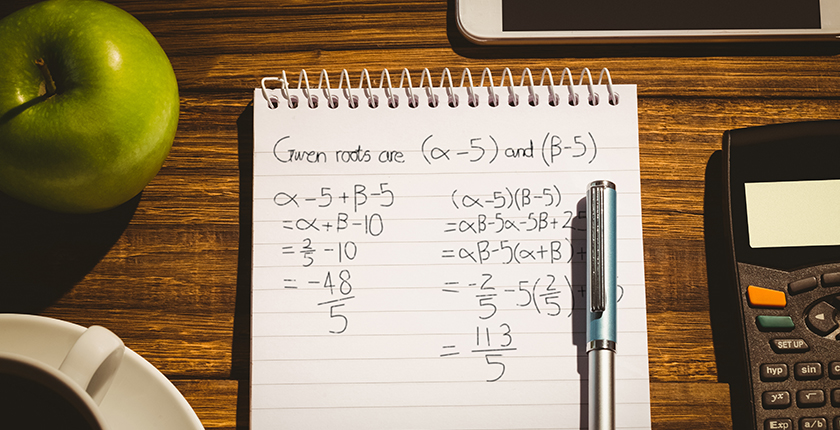 Given roots are (α-5) and (β-5)
α-5+β-5
=α+β-10
=2/5 -10
=-48/5
(α-5)(β-5)
=αβ-5α-5β+2
=αβ-5(α+β)+
=-2/5 -5(2/5)+
=113/5
SET UP
hyp
sin
yˣ
√
Exp
a/b